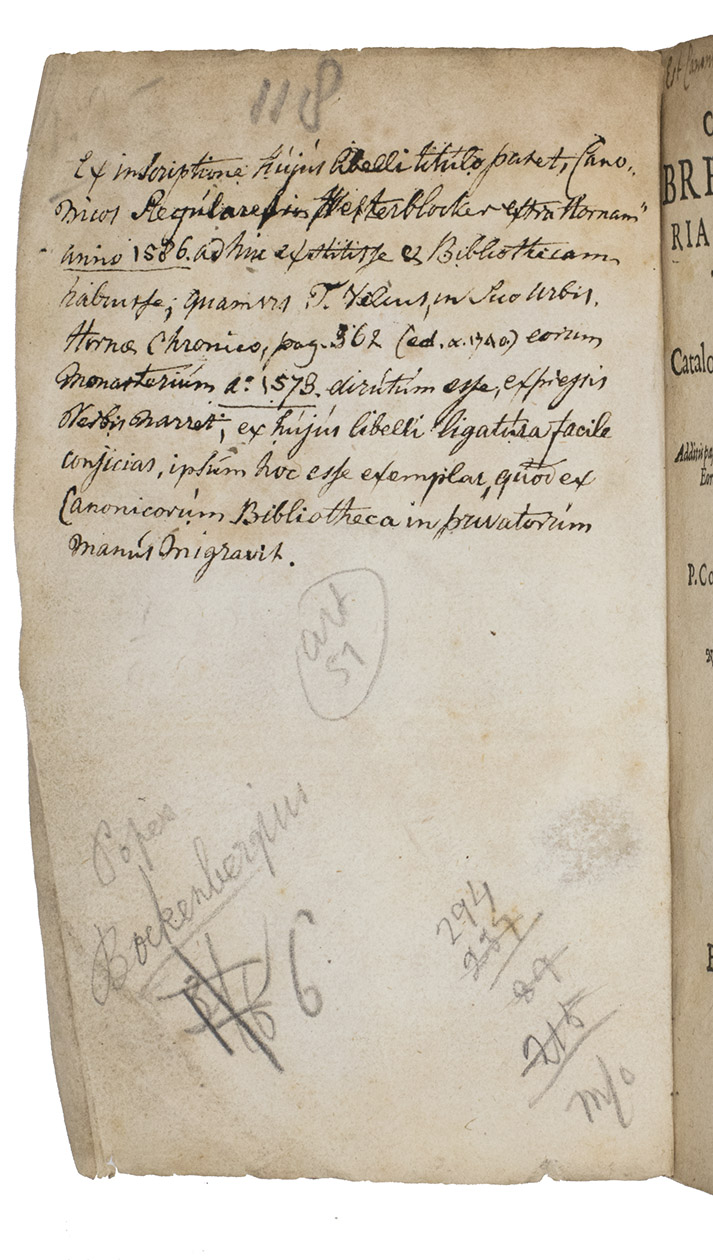 118
Ex inscriptione hújús libelli titulo patet, Cano-
nicos Regúlares in Westerblocker extra Hornam
anno 1586. adhuc exstitisse & Bibliothecam
habuisse; quamvis T. Velius, in suo Urbis
Hornæ Chronico, pag. 362 (ed. a. 1740) eorum
Monasteriúm aº. 1573. dirútúm esse, expressis
Verbis narret; ex hújús libelli ligatura facile
conjicias, ipsúm hoc esse exemplar, quod ex
Canonicorúm Bibliotheca in privatorúm
manús migravit.
art
51
Bockenbergius
6
294
237
89
215
Est Canon
BRE
RIA
Catalo
Additis pa
P. Co